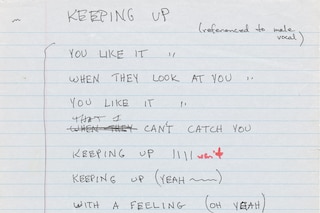 KEEPING UP
(referenced to male vocal)
YOU LIKE IT "
WHEN THEY LOOK AT YOU "
YOU LIKE IT "
THAT I
WHEN THEY CAN'T CATCH YOU
KEEPING UP
KEEPING UP (YEAH
WITH A FEELING (OH YEAH)